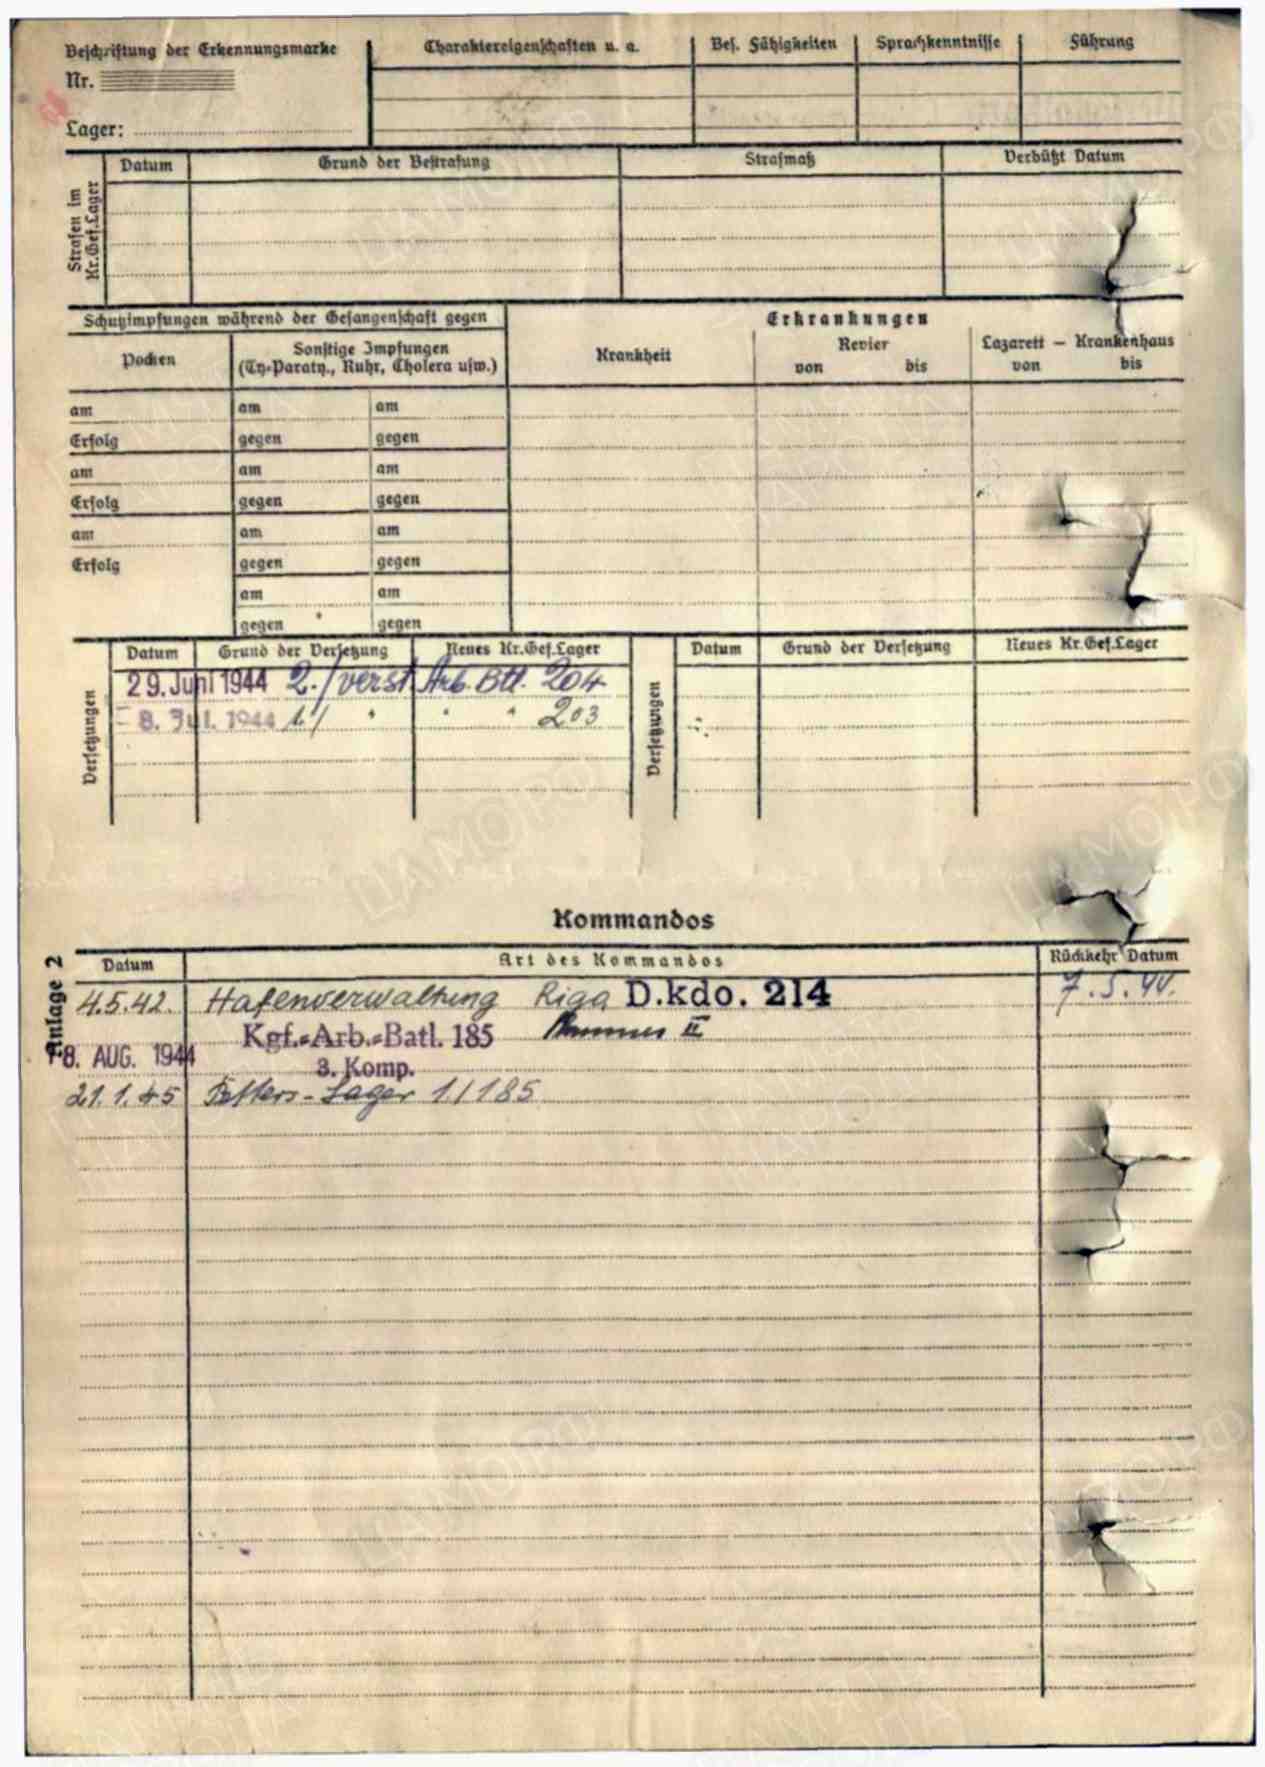 Beschriftung der Erkennungsmarke
Nr.
Lager:
Charaktereigenschaften u. a. Bes. Fähigkeiten Sprachkenntnisse Führung
Strafen im Kr.Gef.Lager
Datum Grund der Bestrafung Strafmaß Verbüßt Datum
Schutzimpfungen während der Gefangenschaft gegen
Erkrankungen
Pocken
Sonstige Impfungen
(Ty-Paraty., Ruhr, Cholera usw.)
Krankheit
Revier
von bis
Lazarett — Krankenhaus
von bis
am am am
Erfolg gegen gegen
am am am
Erfolg gegen gegen
am am am
Erfolg gegen gegen
am am
gegen gegen
Versetzungen
Datum Grund der Versetzung Neues Kr.Gef.Lager
29. Juni 1944 2./verst. Arb. Btl. 204
8. Jul. 1944 1./ " " " 203
Versetzungen
Datum Grund der Versetzung Neues Kr.Gef.Lager
ЦАМО РФ
Kommandos
Anlage 2
Datum Art des Kommandos Rückkehr Datum
4.5.42. Hafenverwaltung Riga D.kdo. 214 7.5.44.
Kgf.-Arb.-Batl. 185 II
18. AUG. 1944 3. Komp.
21.1.45 Lager 1/185